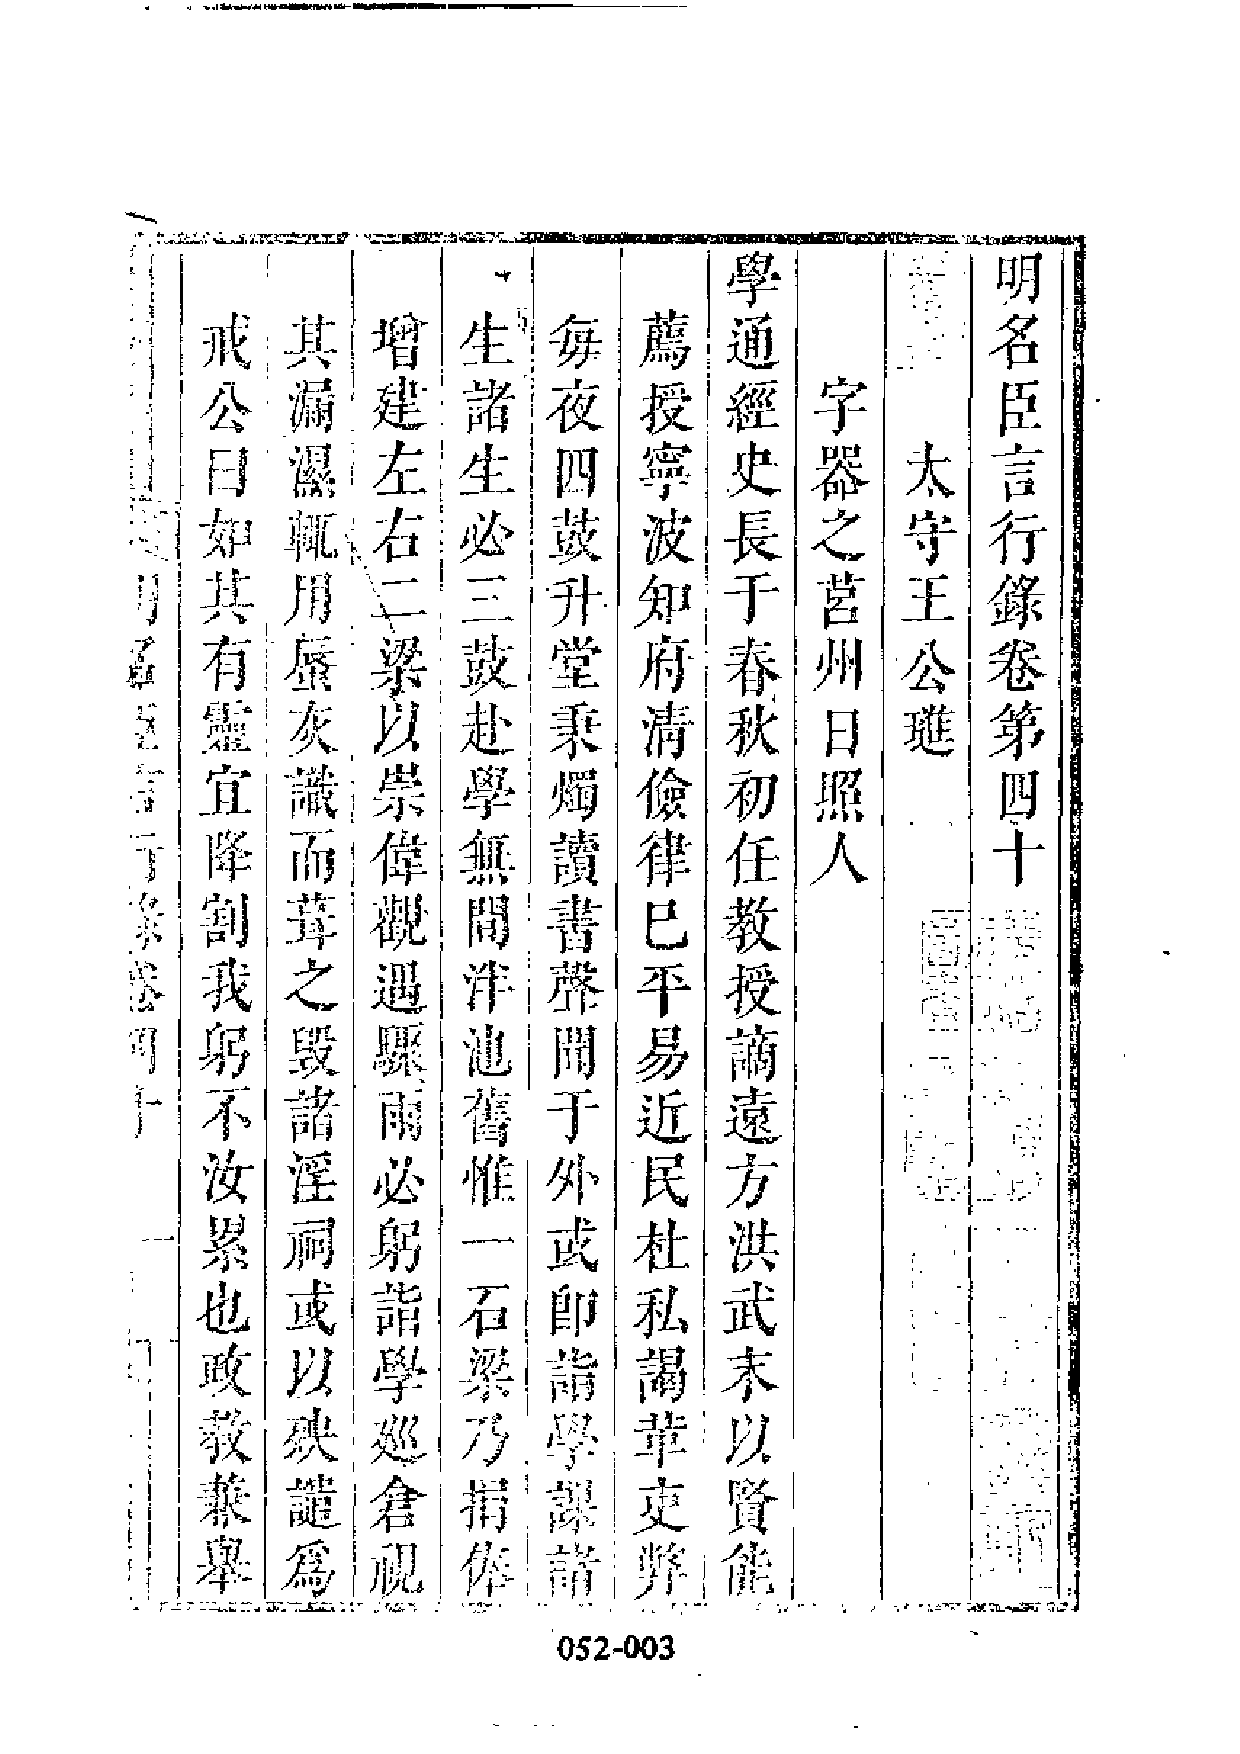 明名臣言行錄卷第四十
太守王公璡
字器之莒州日照人
學通經史長于春秋初任教授謫遠方洪武末以賢能
薦授寧波知府清儉律巳平易近民杜私謁革吏弊
每夜四鼓升堂秉燭讀書聲聞于外或卽詣學課諸
生諸生必三鼓赴學無間泮池舊惟一石梁乃捐俸
增建左右二梁以崇偉觀遇驟雨必躬詣學巡倉視
其漏濕輒用蜃灰識而葺之毀諸淫祠或以殃譴爲
戒公曰如其有靈宜降割我躬不汝累也政教兼舉
明名臣言行錄卷四十
一
052-003